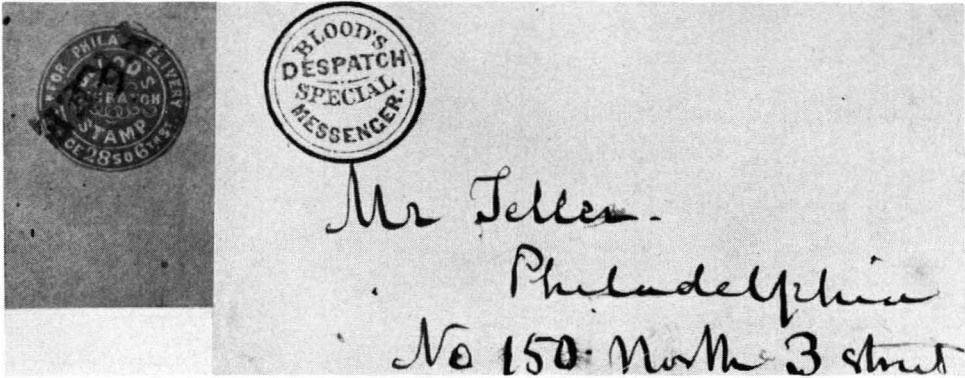 FOR PHILA DELIVERY
BLOOD'S
DESPATCH
STAMP
CE 28 SO 6TH ST
BLOOD'S
DESPATCH
SPECIAL
MESSENGER.
Mr Teller.
Philadelphia
No 150 North 3 street